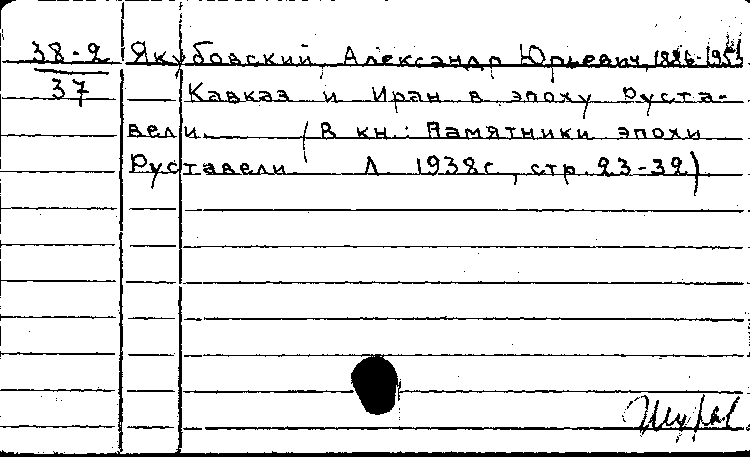 38-2 Якубовский, Александр Юрьевич, 1886-1953
37 Кавказ и Иран в эпоху Руста-
вели. (В кн.: Памятники эпохи
Руставели. Л. 1938г., стр. 23-32)